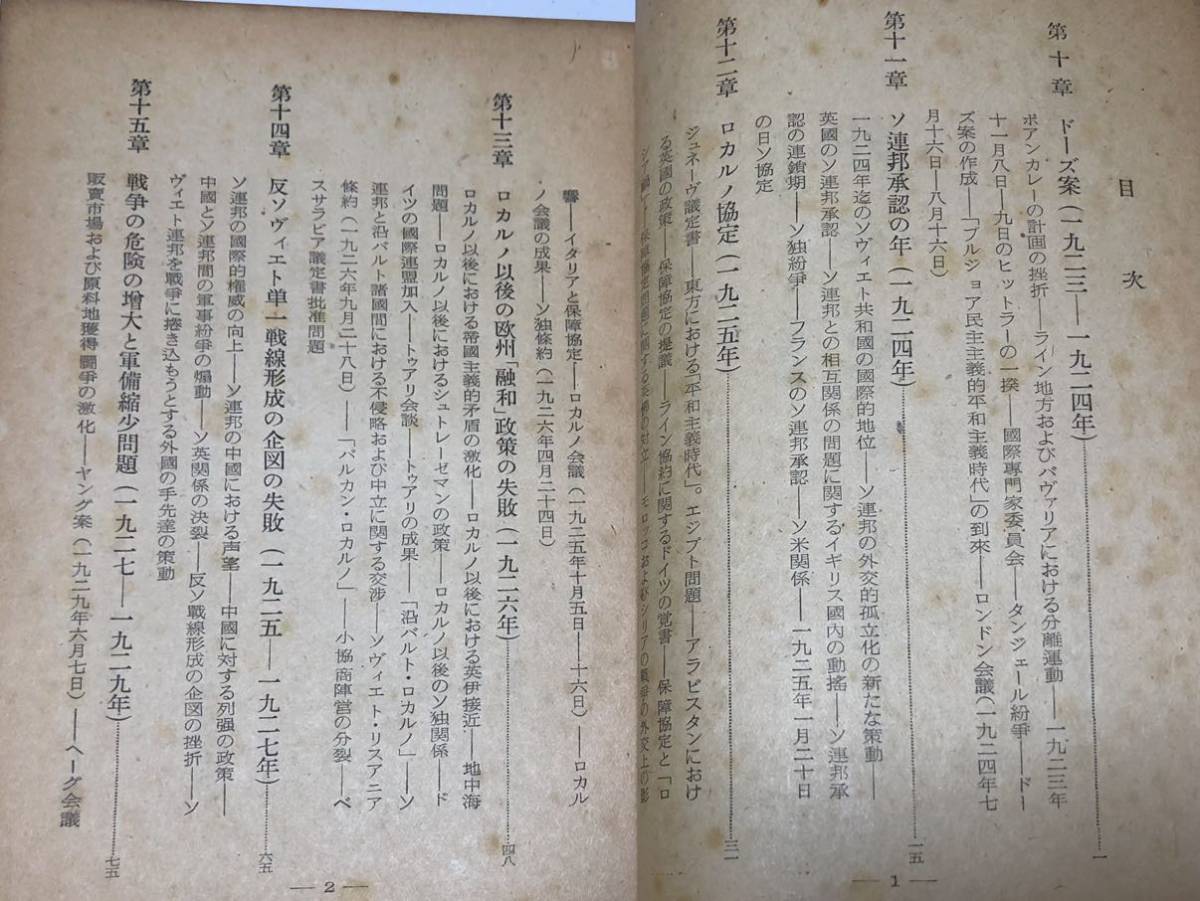 目次
第十章 ドーズ案(一九二三——一九二四年)……一
ポアンカレーの計画の挫折——ライン地方およびバヴァリアにおける分離運動——一九二三年
十一月八日——九日のヒットラーの一揆——國際專門家委員会——タンジェール紛爭——ドー
ズ案の作成——「ブルジョア民主主義的平和主義時代」の到來——ロンドン会議(一九二四年七
月十六日——八月十六日)
第十一章 ソ連邦承認の年(一九二四年)……一五
一九二四年迄のソヴィエト共和國の國際的地位——ソ連邦の外交的孤立化の新たな策動——
英國のソ連邦承認——ソ連邦との相互関係の問題に関するイギリス國內の動搖——ソ連邦承
認の連鎖期——ソ独紛爭——フランスのソ連邦承認——ソ米関係——一九二五年一月二十日
の日ソ協定
第十二章 ロカルノ協定(一九二五年)……三一
ジュネーヴ議定書——東方における「平和主義時代」。エジプト問題——アラビスタンにおけ
る英國の政策——保障協定の提議——ライン協約に関するドイツの覚書——保障協定と「ロ
シア問題」——保障協定問題に関する英佛の対立——モロッコおよびシリアの戰爭の外交上の影
— 1 —
響——イタリアと保障協定——ロカルノ会議(一九二五年十月五日——十六日)——ロカル
ノ会議の成果——ソ独條約(一九二六年四月二十四日)
第十三章 ロカルノ以後の欧州「融和」政策の失敗(一九二六年)……四八
ロカルノ以後における帝國主義的矛盾の激化——ロカルノ以後における英伊接近——地中海
問題——ロカルノ以後におけるシュトレーゼマンの政策——ロカルノ以後のソ独関係——ド
イツの國際連盟加入——トゥアリ会談——トゥアリの成果——「沿バルト・ロカルノ」——ソ
連邦と沿バルト諸國間における不侵略および中立に関する交渉——ソヴィエト・リスアニア
條約(一九二六年九月二十八日)——「バルカン・ロカルノ」——小協商陣営の分裂——ベ
スサラビア議定書批准問題
第十四章 反ソヴィエト单一戦線形成の企図の失敗(一九二五——一九二七年)……六五
ソ連邦の國際的権威の向上——ソ連邦の中國における声望——中國に対する列强の政策——
中國とソ連邦間の軍事紛爭の煽動——ソ英関係の決裂——反ソ戰線形成の企図の挫折——ソ
ヴィエト連邦を戰爭に捲き込もうとする外國の手先達の策動
第十五章 戦争の危険の增大と軍備縮少問題(一九二七——一九二九年)……七五
販賣市場および原料地獲得 鬪爭の激化——ヤング案(一九二九年六月七日)——ヘーグ会議
— 2 —